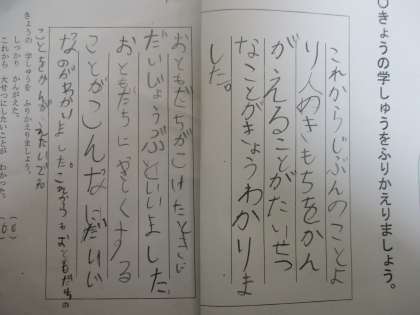 ○きょうの学しゅうをふりかえりましょう。
これからじぶんのことよ
り人のきもちをかん
がえることがたいせつ
なことがきょうわかりま
した。
おともだちがこけたときに
だいじょうぶといいました。
おともだちにやさしくする
ことがこんなにだいじ
なのがわかりました。これからもおともだちの
ことを
きょうの学しゅうを ふりかえりましょう。
しっかり かんがえた。
これから 大せつにしたいことが わかった。